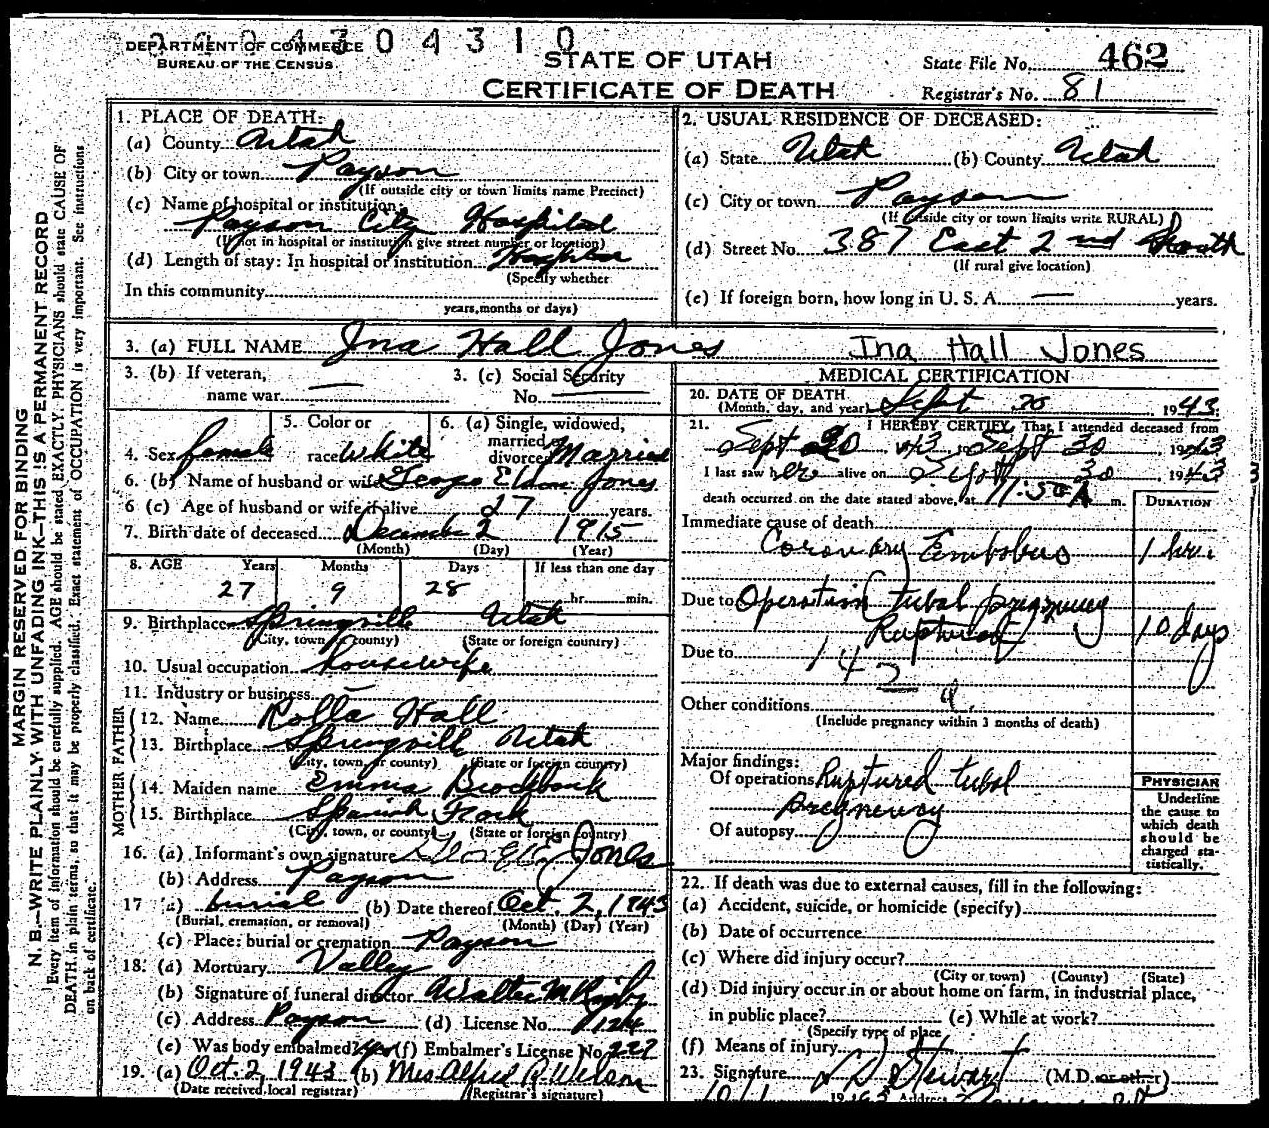 DEPARTMENT OF COMMERCE
BUREAU OF THE CENSUS
04310
STATE OF UTAH
CERTIFICATE OF DEATH
State File No. 462
Registrar's No. 81
MARGIN RESERVED FOR BINDING
N. B.—WRITE PLAINLY, WITH UNFADING INK—THIS IS A PERMANENT RECORD
Every item of information should be carefully supplied. AGE should be stated EXACTLY. PHYSICIANS should state CAUSE OF
DEATH in plain terms, so that it may be properly classified. Exact statement of OCCUPATION is very important. See instructions
on back of certificate.
1. PLACE OF DEATH:
(a) County Utah
(b) City or town Payson
(If outside city or town limits name Precinct)
(c) Name of hospital or institution:
Payson City Hospital
(If not in hospital or institution give street number or location)
(d) Length of stay: In hospital or institution Hospital
(Specify whether
In this community
years, months or days)
2. USUAL RESIDENCE OF DECEASED:
(a) State Utah (b) County Utah
(c) City or town Payson
(If outside city or town limits write RURAL)
(d) Street No. 387 East 2nd South
(If rural give location)
(e) If foreign born, how long in U. S. A. — years.
3. (a) FULL NAME Ina Hall Jones Ina Hall Jones
3. (b) If veteran,
name war —
3. (c) Social Security
No. —
4. Sex female
5. Color or
race White
6. (a) Single, widowed,
married,
divorced Married
6. (b) Name of husband or wife George Jones
6 (c) Age of husband or wife if alive 27 years.
7. Birth date of deceased December 2 1915
(Month) (Day) (Year)
8. AGE Years Months Days If less than one day
27 9 28 hr. min.
9. Birthplace Springville Utah
(City, town, or county) (State or foreign country)
10. Usual occupation housewife
11. Industry or business —
FATHER
12. Name Rolla Hall
13. Birthplace Springville Utah
(City, town, or county) (State or foreign country)
MOTHER
14. Maiden name Emma Brockbank
15. Birthplace Spanish Fork
(City, town, or county) (State or foreign country)
16. (a) Informant's own signature George E. Jones
(b) Address Payson
17 (a) burial (b) Date thereof Oct. 2, 1943
(Burial, cremation, or removal) (Month) (Day) (Year)
(c) Place: burial or cremation Payson
18. (a) Mortuary Valley
(b) Signature of funeral director Walter M Rigby
(c) Address Payson (d) License No. 124
(e) Was body embalmed? Yes (f) Embalmer's License No. 222
19. (a) Oct. 2, 1943 (b) Mrs Alfred R. Wilson
(Date received local registrar) (Registrar's signature)
MEDICAL CERTIFICATION
20. DATE OF DEATH
(Month, day, and year) Sept 30, 1943.
21. I HEREBY CERTIFY, That I attended deceased from
Sept 20 1943, Sept 30 1943
I last saw her alive on Sept 30 1943
death occurred on the date stated above, at 11:50 A m.
DURATION
Immediate cause of death
Coronary Embolus 1 hr.
Due to Operation tubal pregnancy
Ruptured 10 days
Due to
142
a
Other conditions
(Include pregnancy within 3 months of death)
Major findings:
Of operations Ruptured tubal
pregnancy
Of autopsy
PHYSICIAN
Underline
the cause to
which death
should be
charged sta-
tistically.
22. If death was due to external causes, fill in the following:
(a) Accident, suicide, or homicide (specify)
(b) Date of occurrence
(c) Where did injury occur?
(City or town) (County) (State)
(d) Did injury occur in or about home on farm, in industrial place,
in public place? (e) While at work?
(Specify type of place
(f) Means of injury
23. Signature Stewart (M.D. or other)
10/1 Address